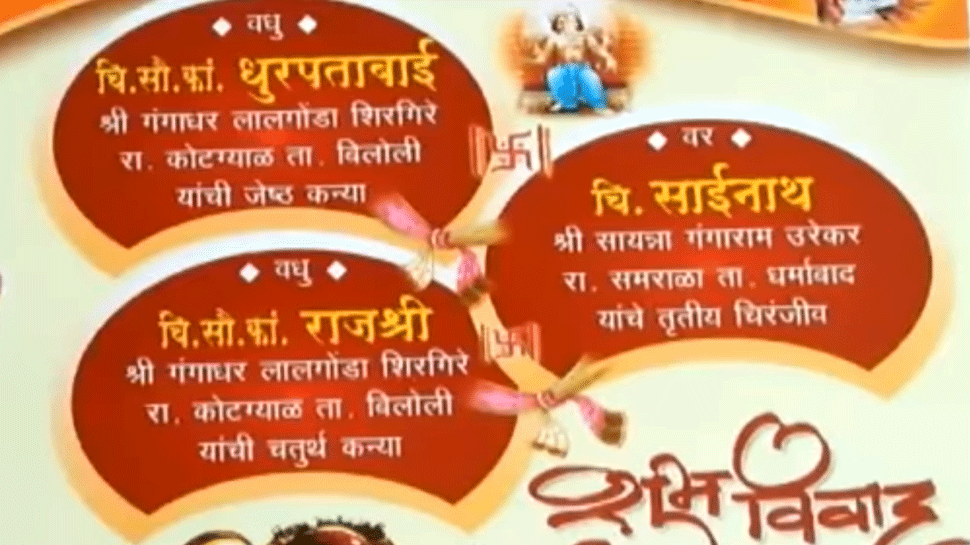 ◆ वधु ◆
चि.सौ.कां. धुरपताबाई
श्री गंगाधर लालगोंडा शिरगिरे
रा. कोटग्याळ ता. बिलोली
यांची जेष्ठ कन्या
◆ वर ◆
चि. साईनाथ
श्री सायन्ना गंगाराम उरेकर
रा. समराळा ता. धर्माबाद
यांचे तृतीय चिरंजीव
◆ वधु ◆
चि.सौ.कां. राजश्री
श्री गंगाधर लालगोंडा शिरगिरे
रा. कोटग्याळ ता. बिलोली
यांची चतुर्थ कन्या
शुभ विवाह